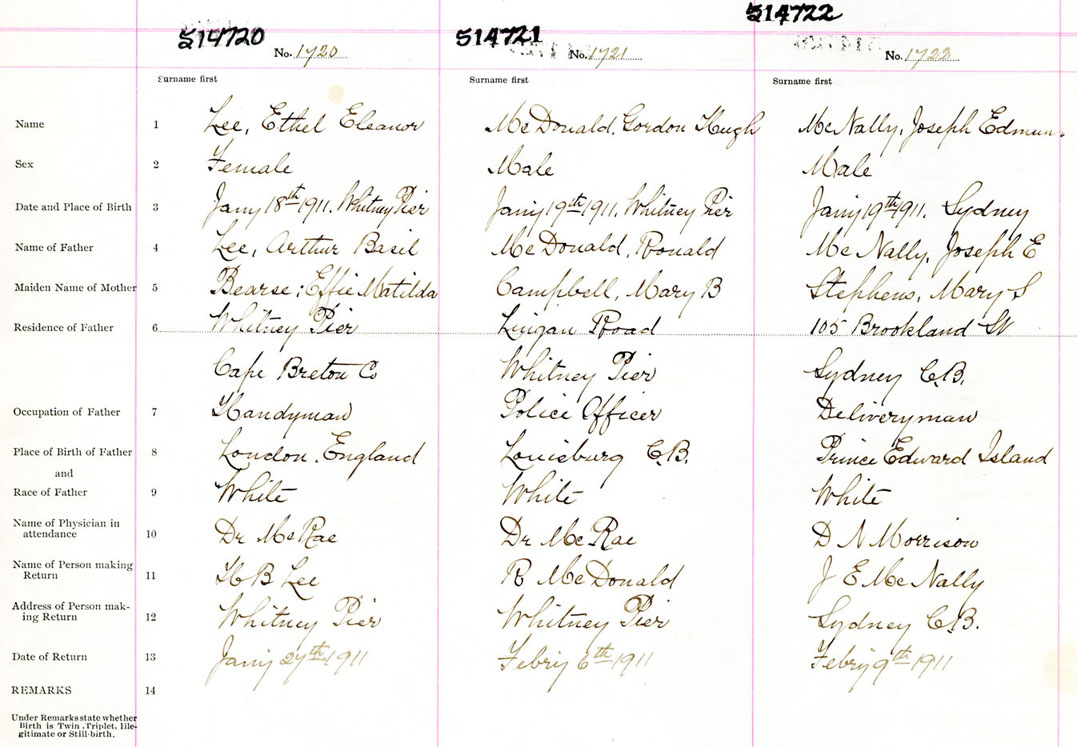 514720 514721 514722
No. 1720 No. 1721 No. 1722
Surname first Surname first Surname first
Name 1 Lee, Ethel Eleanor McDonald, Gordon Hugh McNally, Joseph Edmun
Sex 2 Female Male Male
Date and Place of Birth 3 Jany 18th 1911. Whitney Pier Jany 19th 1911. Whitney Pier Jany 19th 1911. Sydney
Name of Father 4 Lee, Arthur Basil McDonald, Ronald McNally, Joseph E
Maiden Name of Mother 5 Bearse; Effie Matilda Campbell, Mary B Stephens, Mary S
Residence of Father 6 Whitney Pier Lingan Road 105 Brookland St
Cape Breton Co Whitney Pier Sydney C.B.
Occupation of Father 7 Handyman Police Officer Deliveryman
Place of Birth of Father 8 London. England Louisburg C.B. Prince Edward Island
and
Race of Father 9 White White White
Name of Physician in
attendance 10 Dr McRae Dr McRae D N Morrison
Name of Person making
Return 11 B Lee R McDonald J E McNally
Address of Person mak-
ing Return 12 Whitney Pier Whitney Pier Sydney C.B.
Date of Return 13 Jany 27th 1911 Febry 6th 1911 Febry 9th 1911
REMARKS 14
Under Remarks state whether
Birth is Twin, Triplet, Ille-
gitimate or Still-birth.